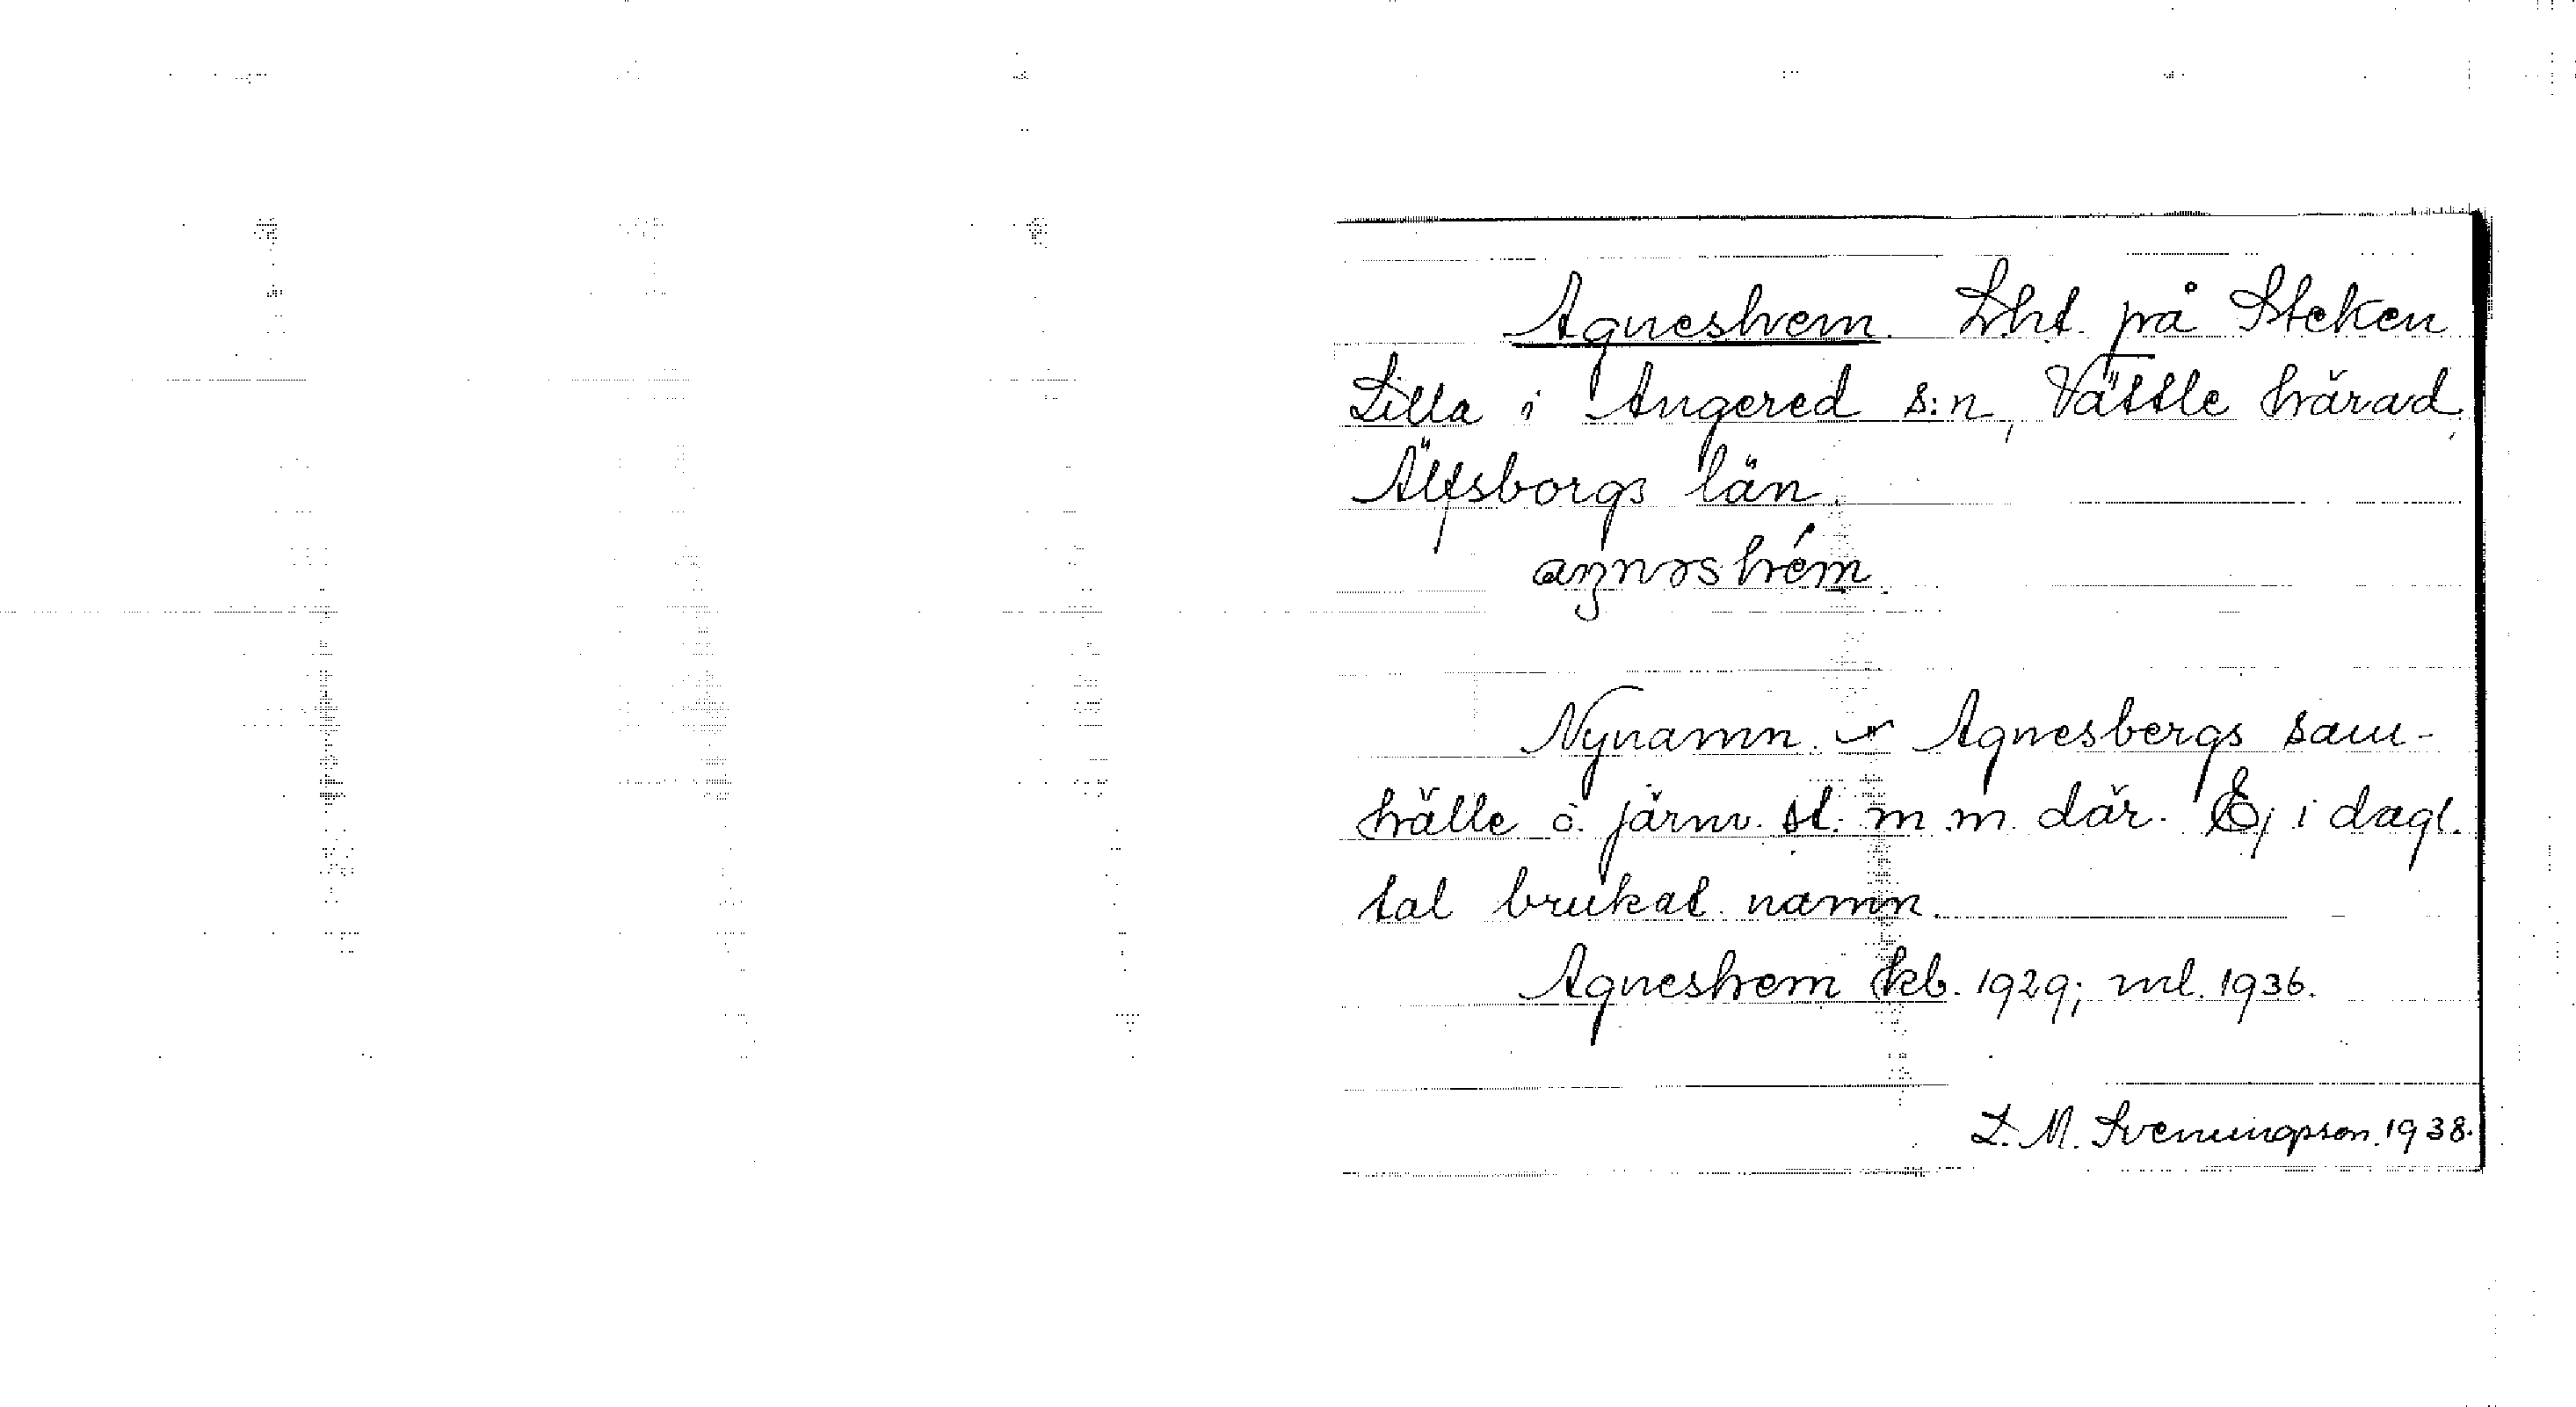 Agneshem. Lht. på Steken
Lilla i Angered s:n, Vättle härad,
Älfsborgs län.
Nynamn. Agnesbergs sam-
hälle o. järnv. st. m. m. där. Ej i dagl.
tal brukat namn.
Agneshem kb. 1929; ml. 1936.
L. M. Svenungsson. 1938.